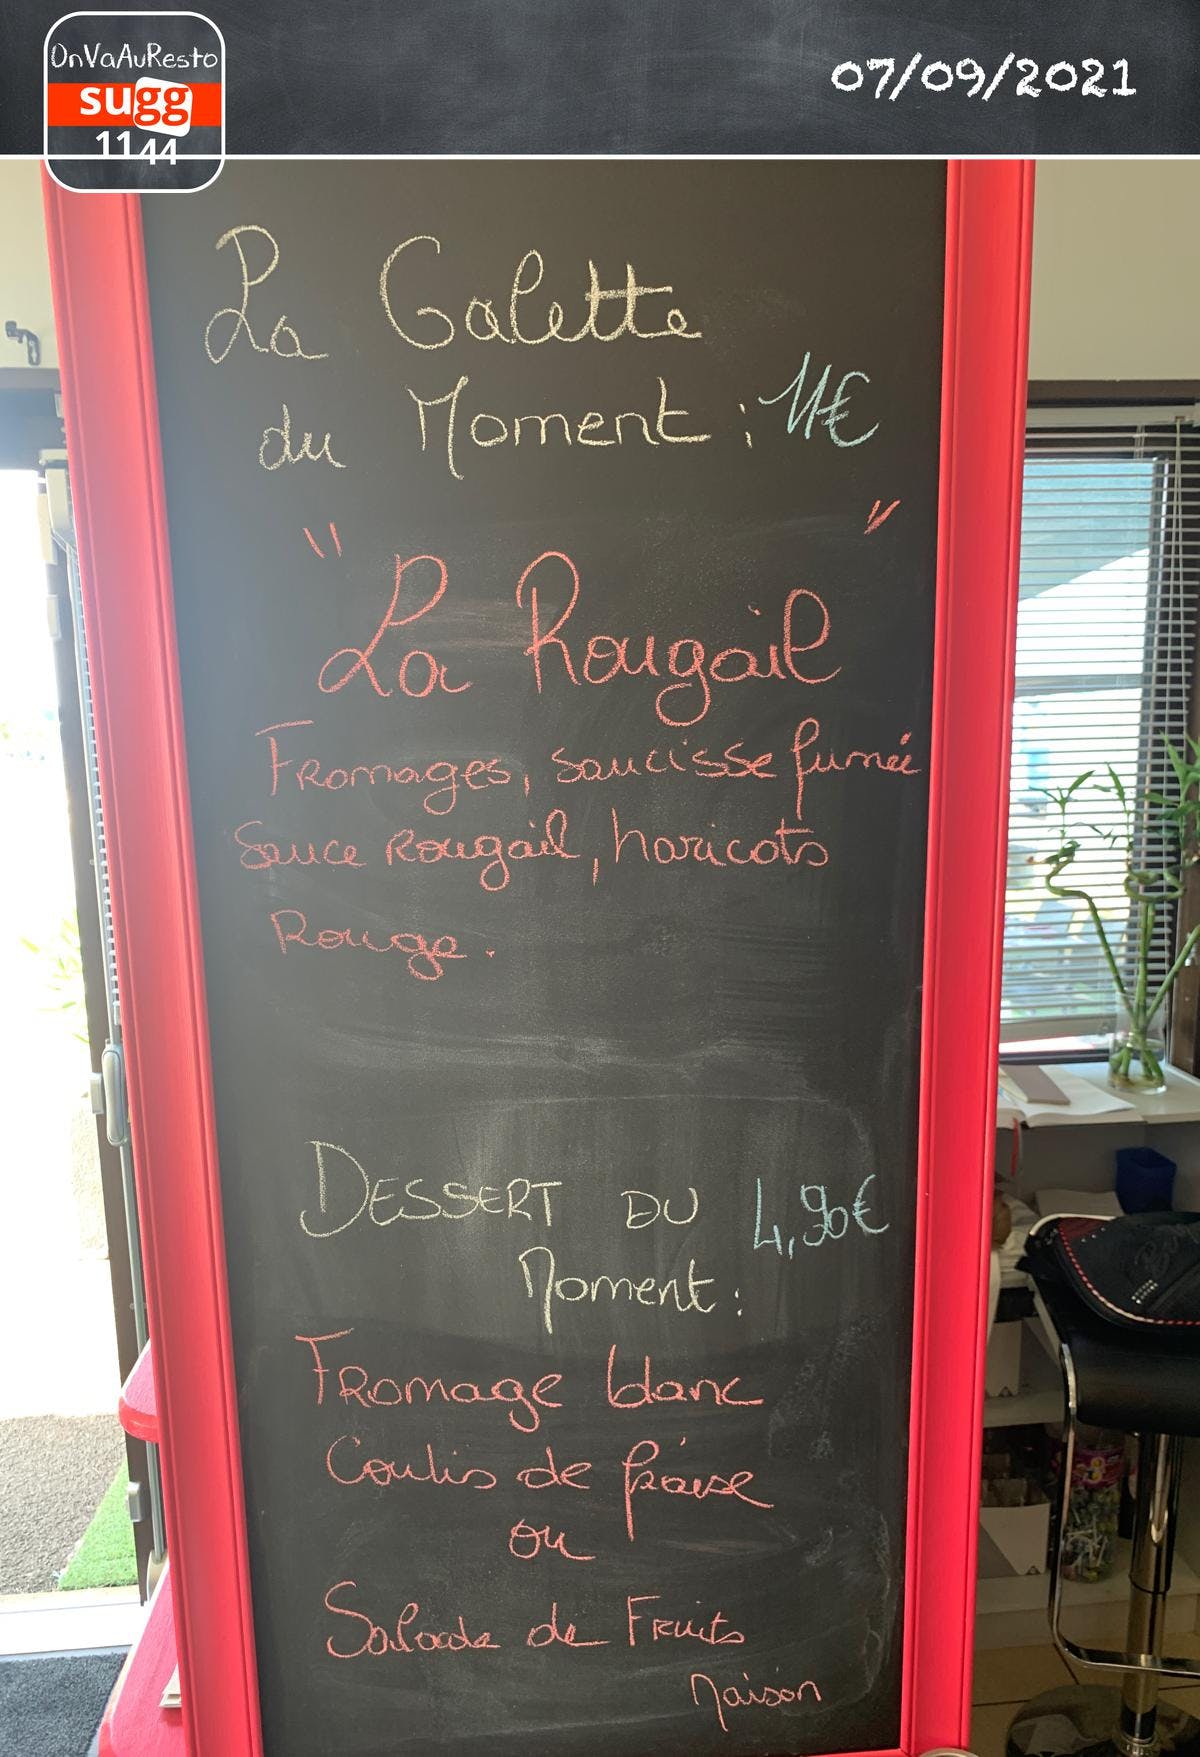 OnVaAuResto
sugg
1144
07/09/2021
La Galette
du Moment : 11€
" La Rougail "
Fromages, saucisse fumée
Sauce Rougail, haricots
Rouge.
DESSERT DU 4,90€
Moment :
Fromage blanc
Coulis de fraise
ou
Salade de Fruits
Maison